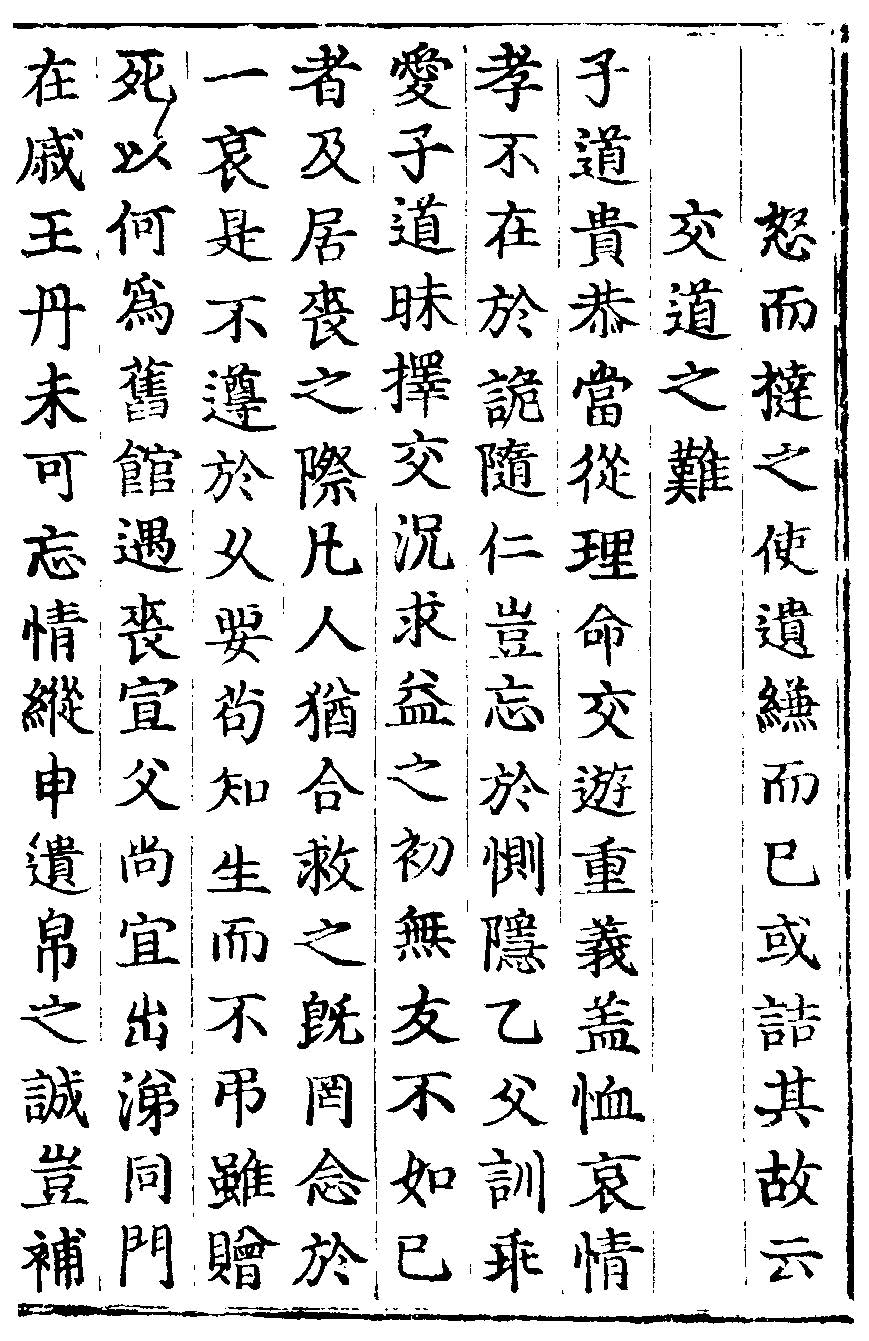 怒而撻之使遺縑而已或詰其故云
交道之難
子道貴恭當從理命交遊重義盖恤哀情
孝不在於詭隨仁豈忘於惻隱乙父訓乖
愛子道昧擇交況求益之初無友不如已
者及居喪之際凡人猶合救之旣罔念於
一哀是不遵於久要苟知生而不弔雖贈
死以何爲舊館遇喪宣父尚宜出涕同門
在戚王丹未可忘情縱申遺帛之誠豈補